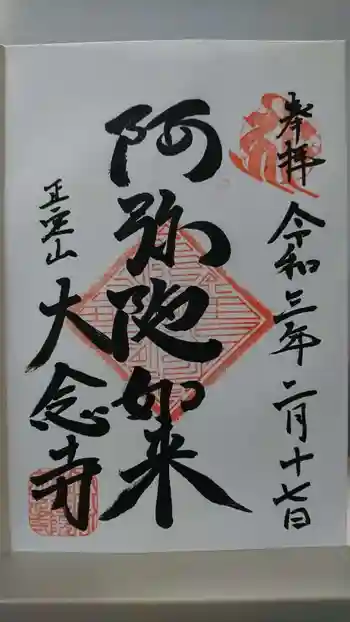 奉拝
令和三年二月十七日
阿弥陀如来
正宝山
大念寺